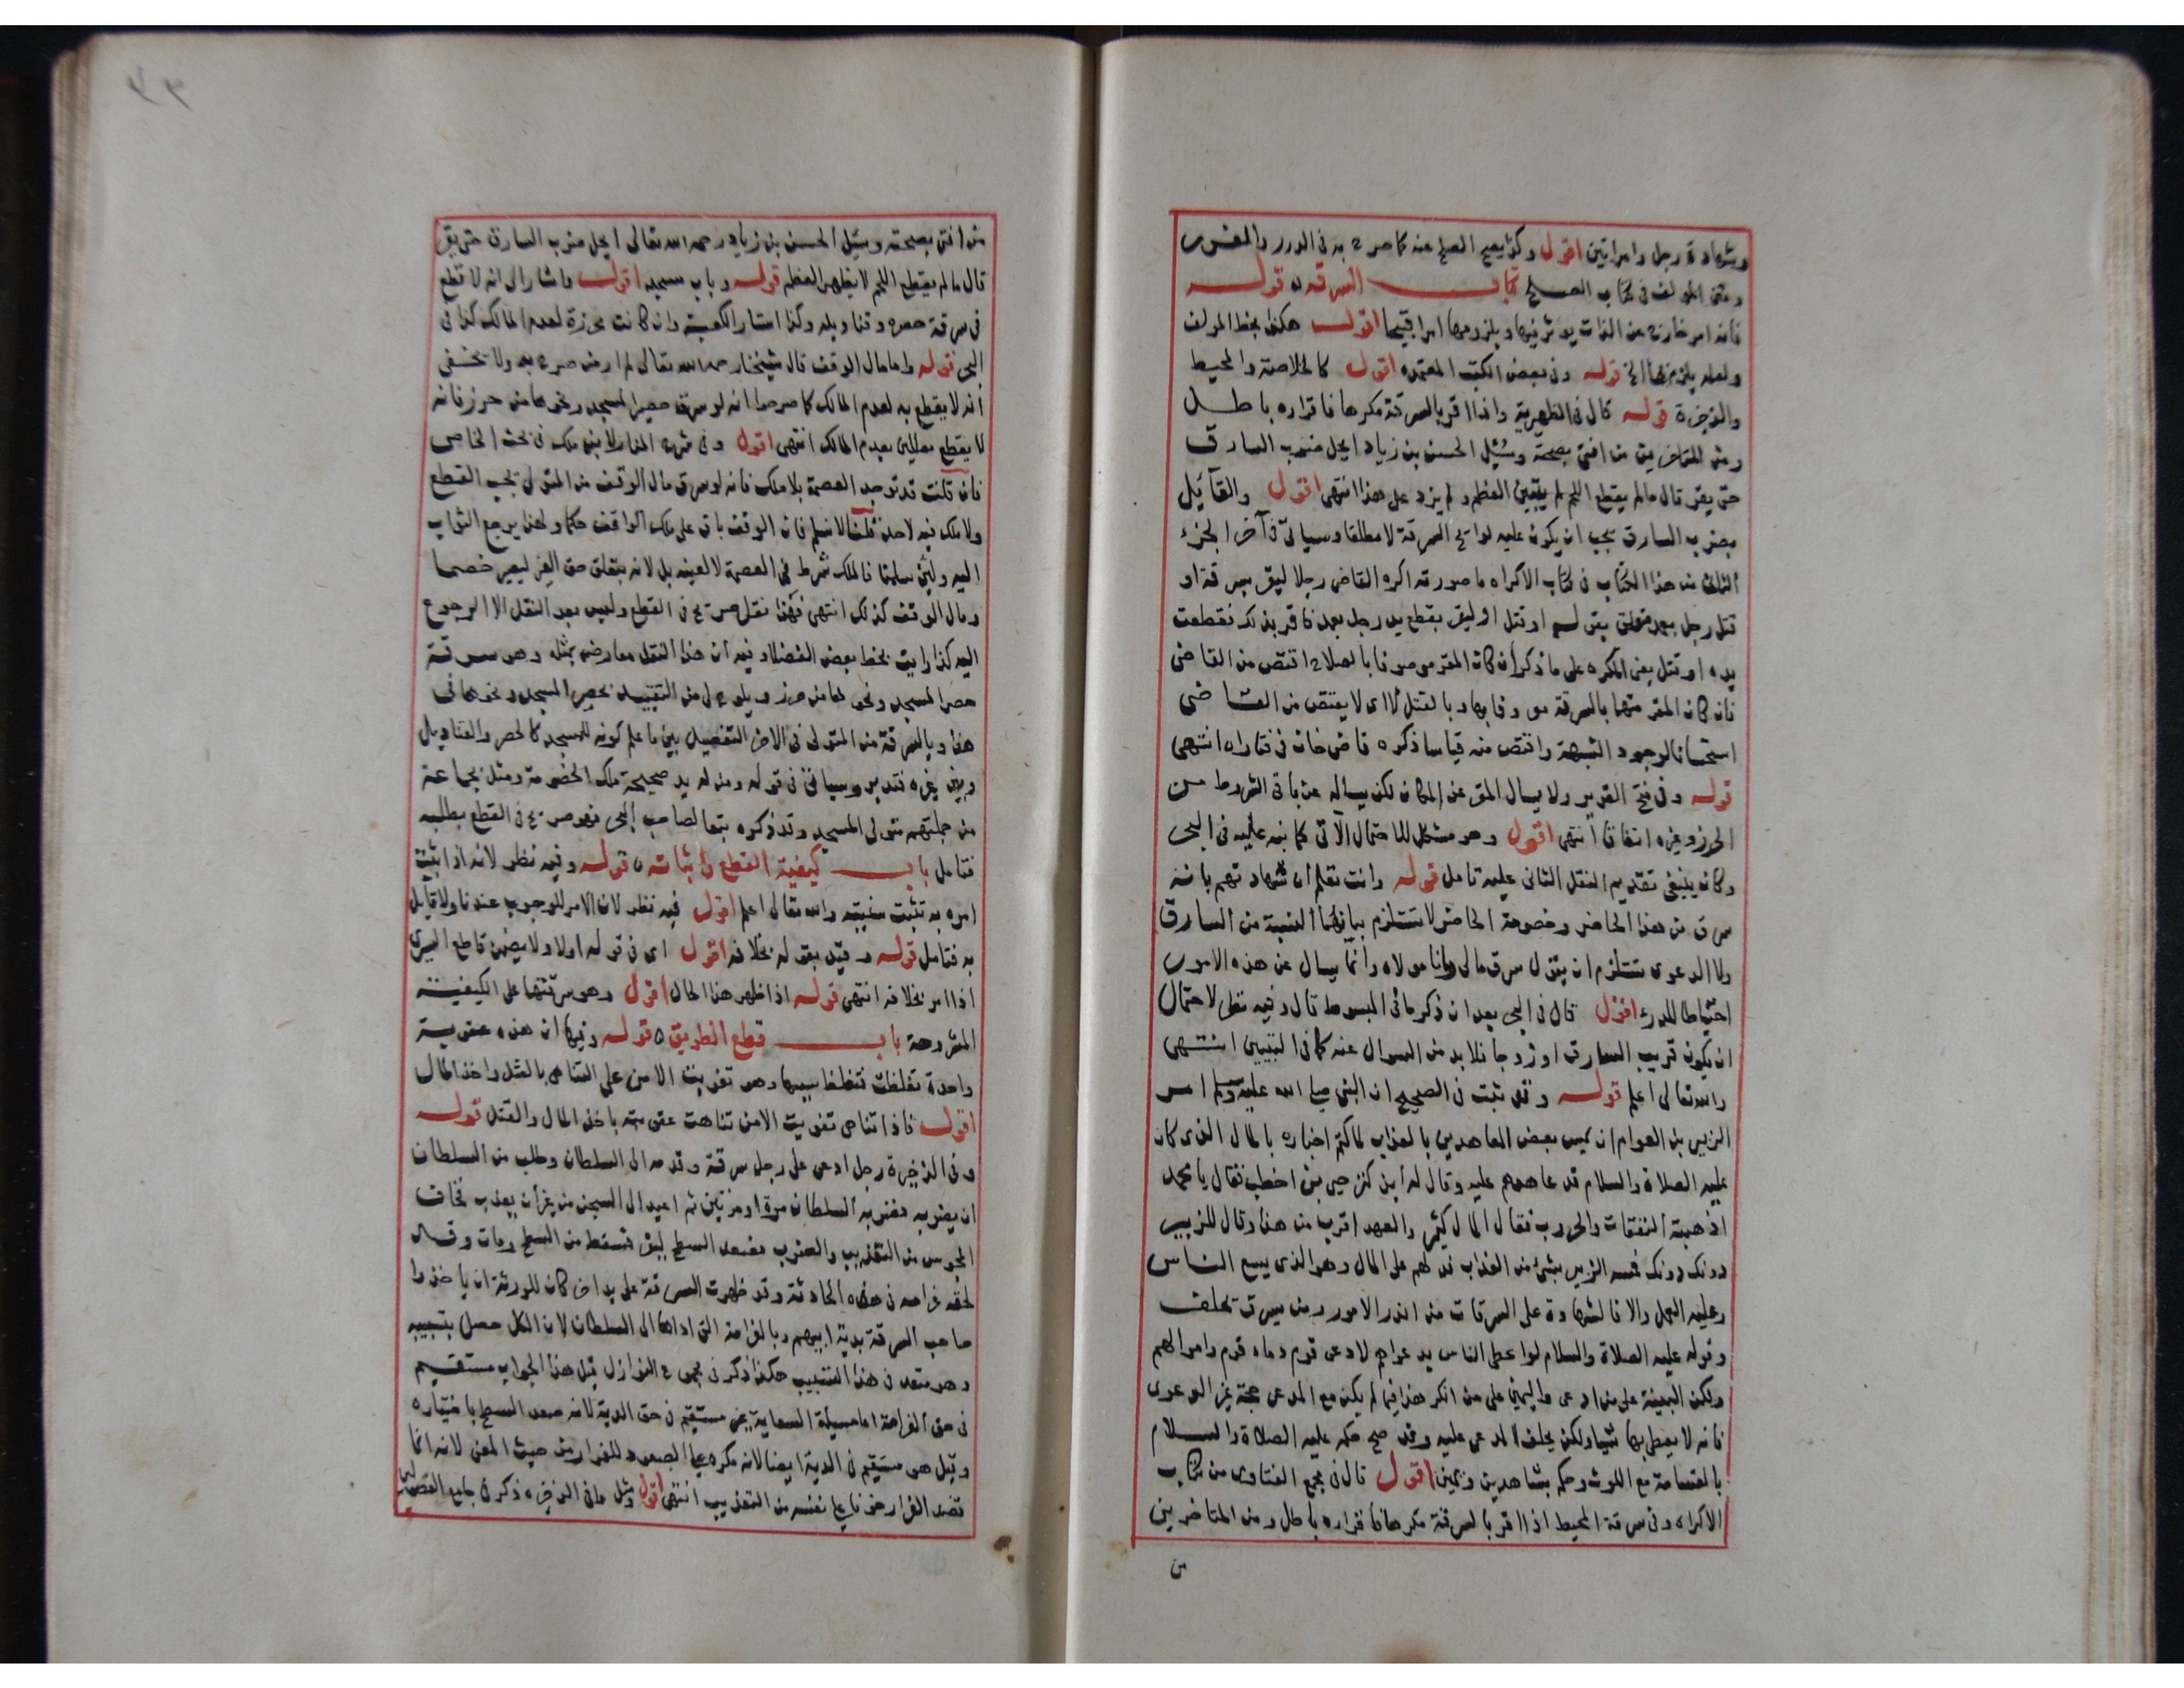 وشهادة رجل وامراتين اقول وكذا يصح الصلح عنه كما صرح به في الدرر والمقدسي
ومتن المولف في كتاب الصلح كتاب السرقه قوله
فانه امر خارج عن الذات يوثر فيها ويلزومها امرا قبيحا اقول هكذا بخط المولف
ولعله يلزم بها الخ قوله وفي بعض الكتب المعتمده اقول كالخلاصة والمحيط
والذخيرة قوله قال في الظهيرية واذا اقر بالسرقة مكرها فاقراره باطل
ومن المتاخرين من افتى بصحته وسُئِل الحسن بن زياد ايحل ضرب السارق
حتى يقر قال ما لم يقطع اللحم لم يتبين العظم ولم يزد على هذا انتهى اقول والقائيل
بضرب السارق يجب ان يكون عليه لوايح السرقة لا مطلقا وسياتي في آخر الجزء
الثالث من هذا الكتاب في كتاب الاكراه ما صورته اكره القاضي رجلا ليقر بسرقة او
قتل رجل بعمد او قتل او ليقر بقطع يد رجل بعمد فاقر بذلك فقطعت
يده او قتل يعني المكره على ما ذكر ان كان المقر موصوفا بالصلاح اقتص من القاضي
فان كان المقر متهما بالسرقة معروفا بها وبالقتل لا اي لا يقتص من القاضي
استحسانا لوجود الشبهة واقتص منه قياسا ذكره قاضي خان في فتاواه انتهى
قوله وفي فتح القدير ولا يسال المقر عن المكان لكن يساله عن باقي الشروط من
الحرز وغيره اتفاقا انتهى اقول وهو مشكل للاحتمال الآتي كما نبه عليه في البحر
وكان ينبغي تقديم النقل الثاني عليه تامل قوله وانت تعلم ان شهادتهم بانه
سرق من هذا الحاضر وخصومة الحاضر لا تستلزم بيانهما النسبة من السارق
ولا الدعوى تستلزم ان يقول سرق مالي وانا مولاه وانما يسال عن هذه الامور
احتياطا للدرء اقول قال في البحر بعد ان ذكر ما في المبسوط قال وفيه نظر لاحتمال
ان يكون قريب السارق او زوجا فلا بد من السوال عنه كما في التبيين انتهى
والله تعالى اعلم قوله وقد ثبت في الصحيح ان النبي صلى الله عليه وسلم امر
الزبير بن العوام ان يمس بعض المعاهدين بالعذاب لما كتم اخباره بالمال الذي كان
عليه الصلاة والسلام قد عاهدهم عليه وقال له اين كنز حيي بن اخطب فقال يا محمد
اذهبته النفقات والحروب فقال المال كثير والعهد اقرب من هذا وقال للزبير
دونك دونك فمسه الزبير بشئ من العذاب فدلهم على المال وهو الذي يسع الناس
وعليه العمل والا فالشهادة على السرقات من اندر الامور ومن يسرق تحلف
وقوله عليه الصلاة والسلام لو اعطى الناس بدعواهم لادعى قوم دماء قوم واموالهم
ولكن البينة على من ادعى واليمين على من انكر هذا فيما لم يكن مع المدعي حجة غير الدعوى
فانه لا يعطى بها شيا ولكن يحلف المدعى عليه وقد صح حكمه عليه الصلاة والسلام
بالقسامة مع اللوث وحكم بشاهدين ويمين اقول قال في مجمع الفتاوى من كتاب
الاكراه وفي سرقة المحيط اذا اقر بالسرقة مكرها فاقراره باطل ومن المتاخرين
من
من افتى بصحته وسئل الحسن بن زياد رحمه الله تعالى ايحل ضرب السارق حتى يقر
قال ما لم يقطع اللحم لا يظهر العظم قوله وباب مسجد اقول واشار الى انه لا قطع
في سرقة حصره وقناديله وكذا استار الكعبة وان كانت محرزة لعدم المالك كذا في
البحر قوله واما مال الوقف قال شيخنا رحمه الله تعالى لم ار من صرح به ولا يخفى
انه لا يقطع به لعدم المالك كما صرحوا انه لو سرق حصير المسجد ونحوها من حرز فانه
لا يقطع معللين بعدم المالك انتهى اقول وفي شرح المنار لابن ملك في بحث الخاص
فان قلت قد توجد العصمة بلا ملك فانه لو سرق مال الوقف من المتولي يجب القطع
ولا ملك فيه لاحد قلنا لا نسلم فان الوقف باق على ملك الواقف حكما ولهذا يرجع الثواب
اليه ولئن سلمنا فالملك شرط في العصمة لا لعينه بل لانه يتعلق حق الغير ليصير خصما
ومال الوقف كذلك انتهى فهذا نقل صريح في القطع وليس بعد النقل الا الرجوع
اليه كذا رايت بخط بعض الفضلا وفيه ان هذا النقل معارض بمثله وهو سرقة
حصر المسجد ونحوها من حرز ويلوح لي من التقييد بحصر المسجد ونحوها في
هذا وبالسرقة من المتولي في الاخر التفصيل بين ما علم كونه للمسجد كالحصر والقناديل
وبين غيره فتدبر وسياتي في قوله ومن له يد صحيحة ملك الخصومة ومثل بجماعة
من جملتهم متولي المسجد وقد ذكره بتعا لصاحب البحر فهو صريح في القطع بطلبه
فتامل باب كيفية القطع واثباته قوله وفيه نظر لانه اذا ثبت
امره به تثبت سنيته والله تعالى اعلم اقول فيه نظر لان الامر للوجوب عندنا ولا قايل
به فتامل قوله وقيد بقوله بخلافه اقول اى في قوله اولا ولا يضمن قاطع اليسرى
اذا امر بخلافه انتهى قوله اذا ظهر هذا الحال اقول وهو سرقتها على الكيفية
المشروحة باب قطع الطريق قوله وفيها ان هذه عقوبة
واحدة تغلظت لتغلظ سببها وهو تفويت الامن على التناهي بالقتل واخذ المال
اقول فاذا تناهى تفويت الامن تناهت عقوبته باخذ المال والقتل قوله
وفي الذخيرة رجل ادعى على رجل سرقة وقدمه الى السلطان وطلب من السلطان
ان يضربه فضربه السلطان مرة او مرتين ثم اعيد الى السجن من غير ان يعذب فخاف
المحبوس من التعذيب والضرب فصعد السطح ليفر فسقط من السطح ومات وقد
لحقه غرامه في هذه الحادثة وقد ظهرت السرقة على يد اخر كان للورثة ان ياخذوا
صاحب السرقة بدية ابيهم وبالغرامة التي اداها الى السلطان لان الكل حصل بتسبيبه
وهو متعد في هذا التسبيب هكذا ذكر في مجموع النوازل قيل هذا الجواب مستقيم
في حق الغرامة اما مسيلة السعاية غير مستقيم في حق الدية لانه صعد السطح باختياره
وقيل هو مستقيم في الدية ايضا لانه مكره على الصعود للفرار من حيث المعنى لانه انما
قصد الفرار خوفا على نفسه من التعذيب انتهى اقول ومثل ما في الذخيره ذكر في جامع الفصولين